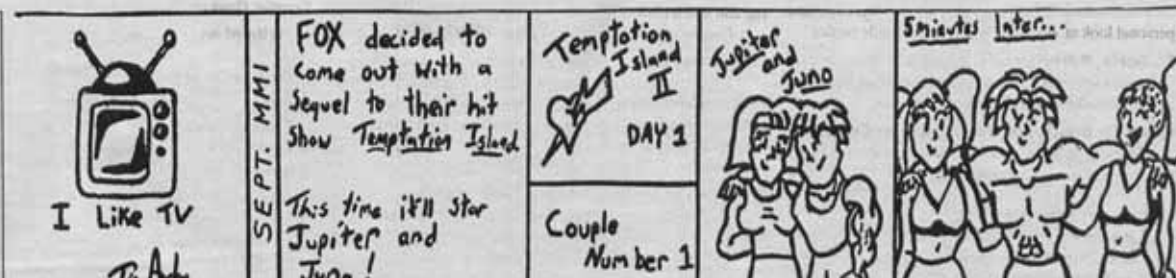 I Like TV
SEPT. MMI
FOX decided to
come out with a
sequel to their hit
show Temptation Island
This time it'll star
Jupiter and
Juno!
Temptation
Island
II
DAY 1
Couple
Number 1
Jupiter
and
Juno
5 minutes later...